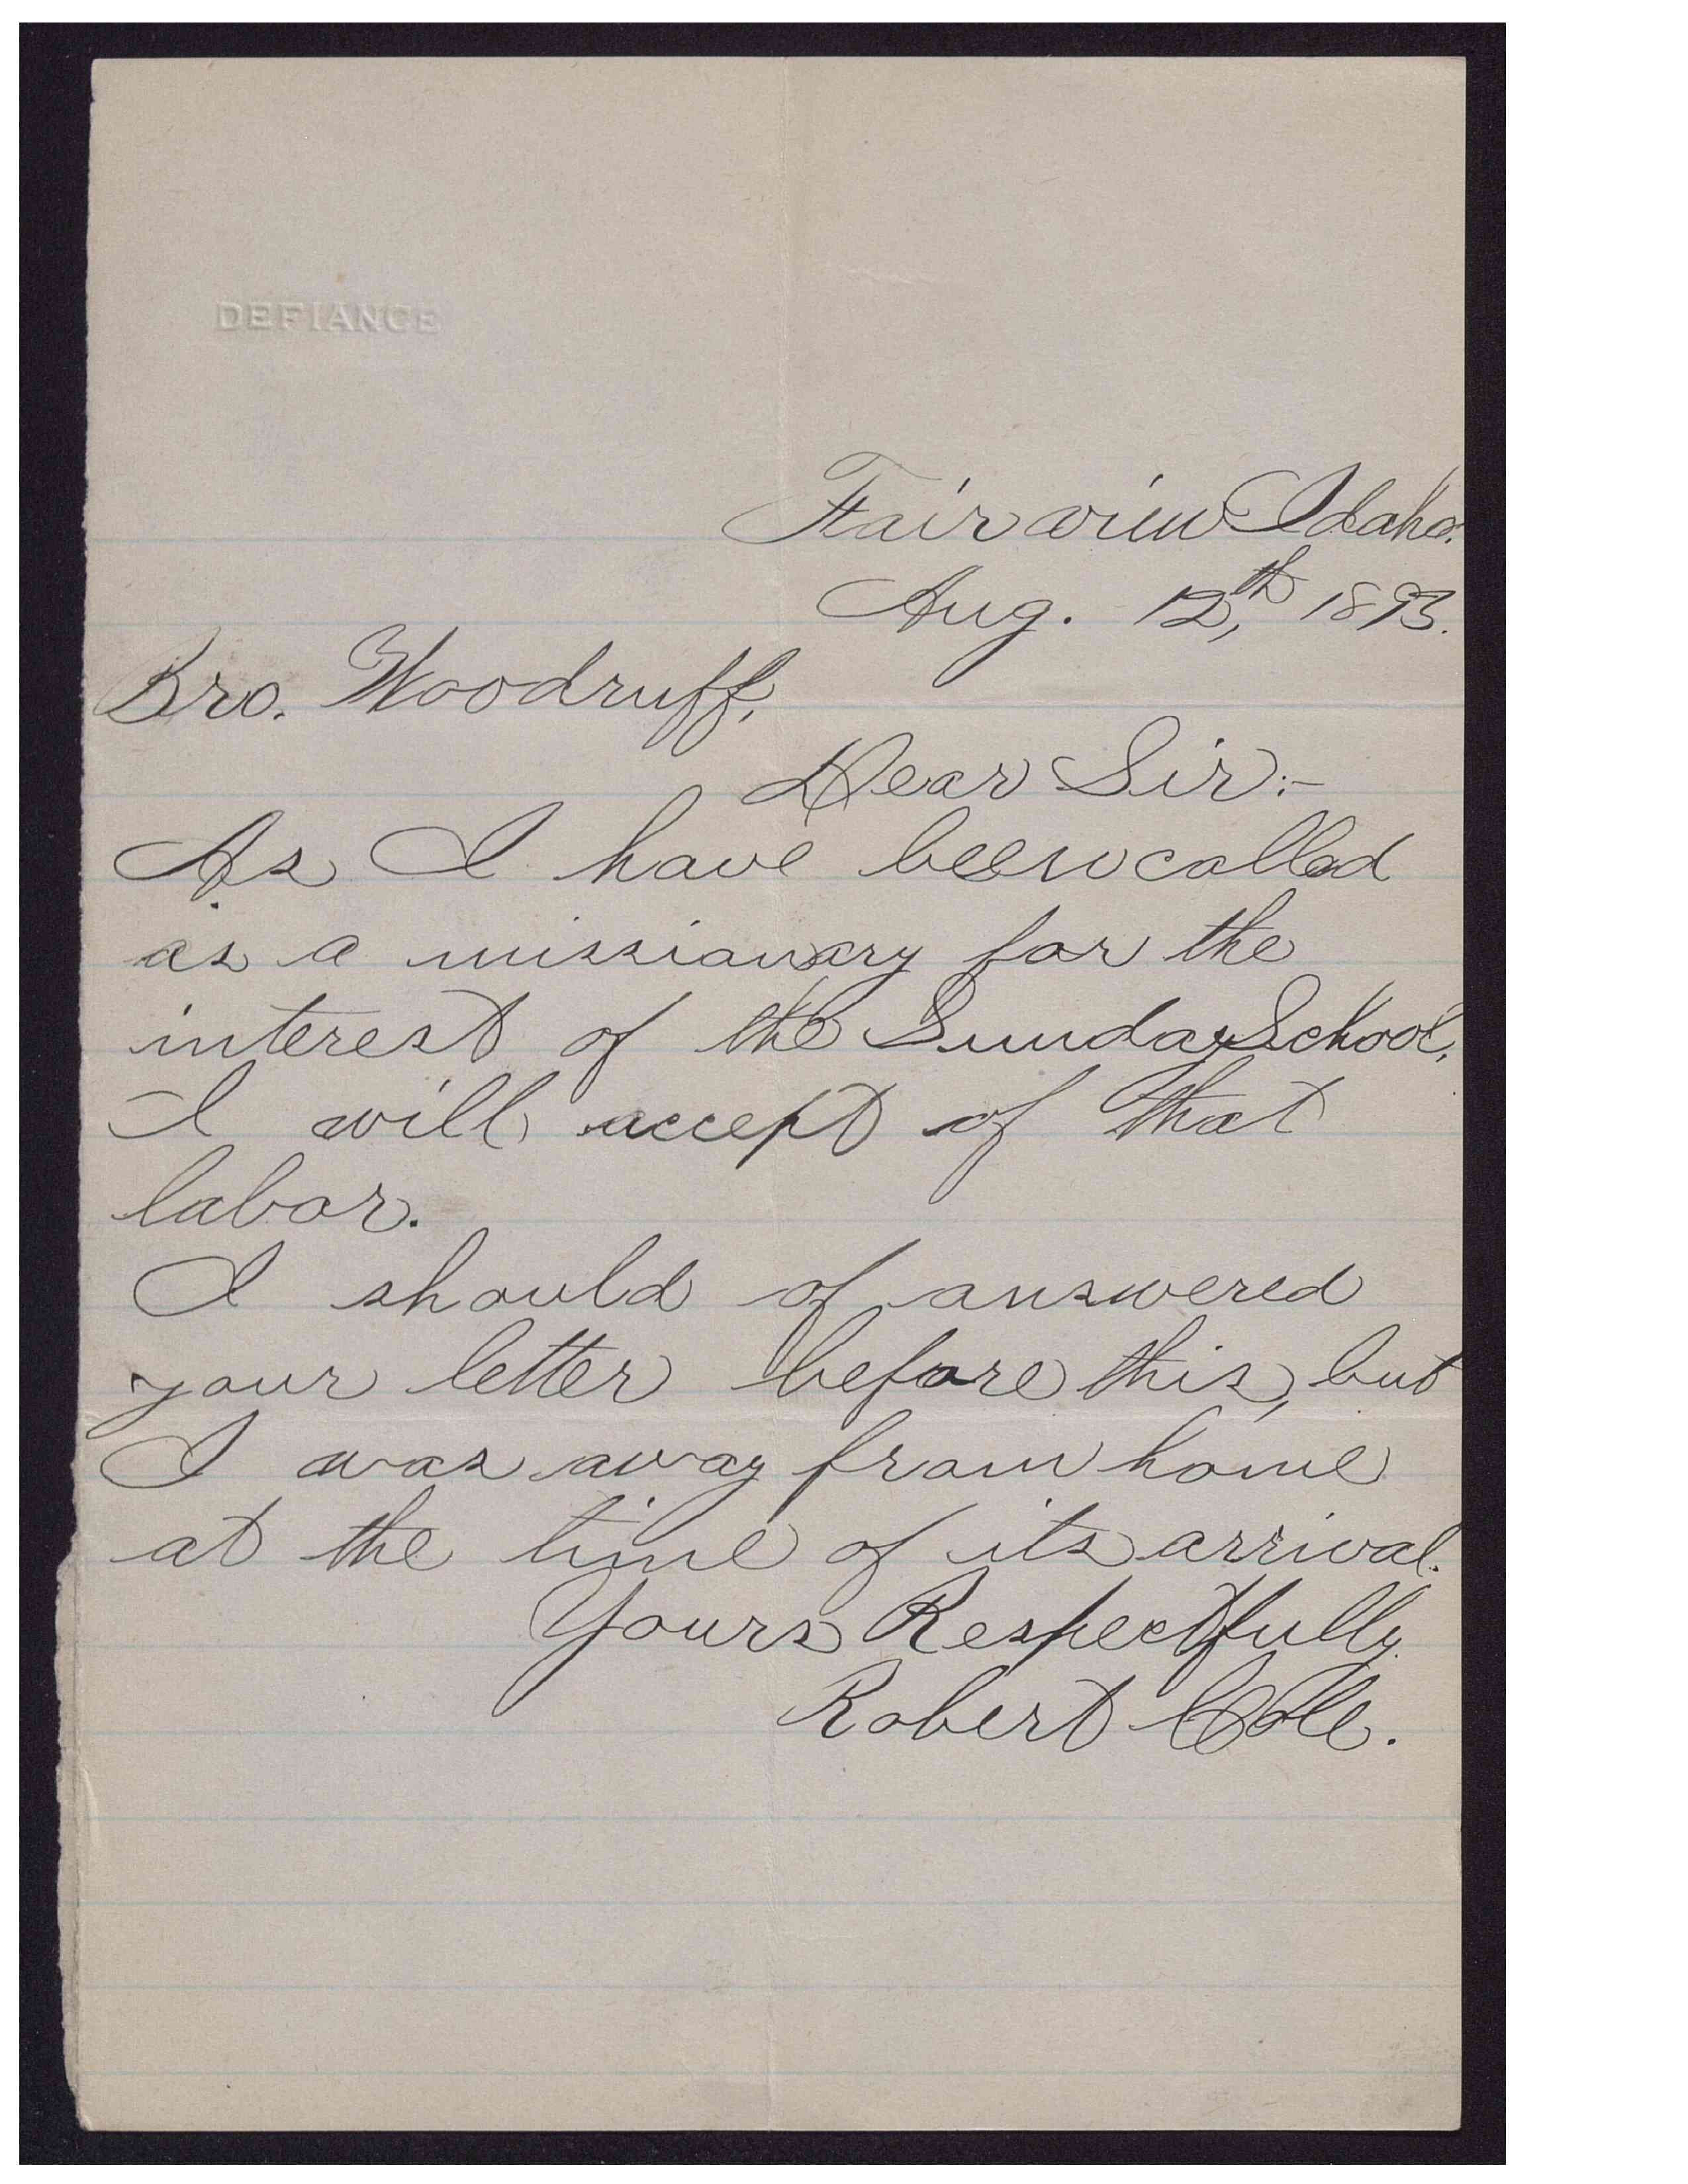 DEFIANCE
Fairview Idaho.
Aug. 12th, 1893.
Bro. Woodruff,
Dear Sir:-
As I have been called
as a missionary for the
interest of the Sunday School,
I will accept of that
labor.
I should of answered
your letter before this, but
I was away from home
at the time of its arrival.
Yours Respectfully
Robert Cole.